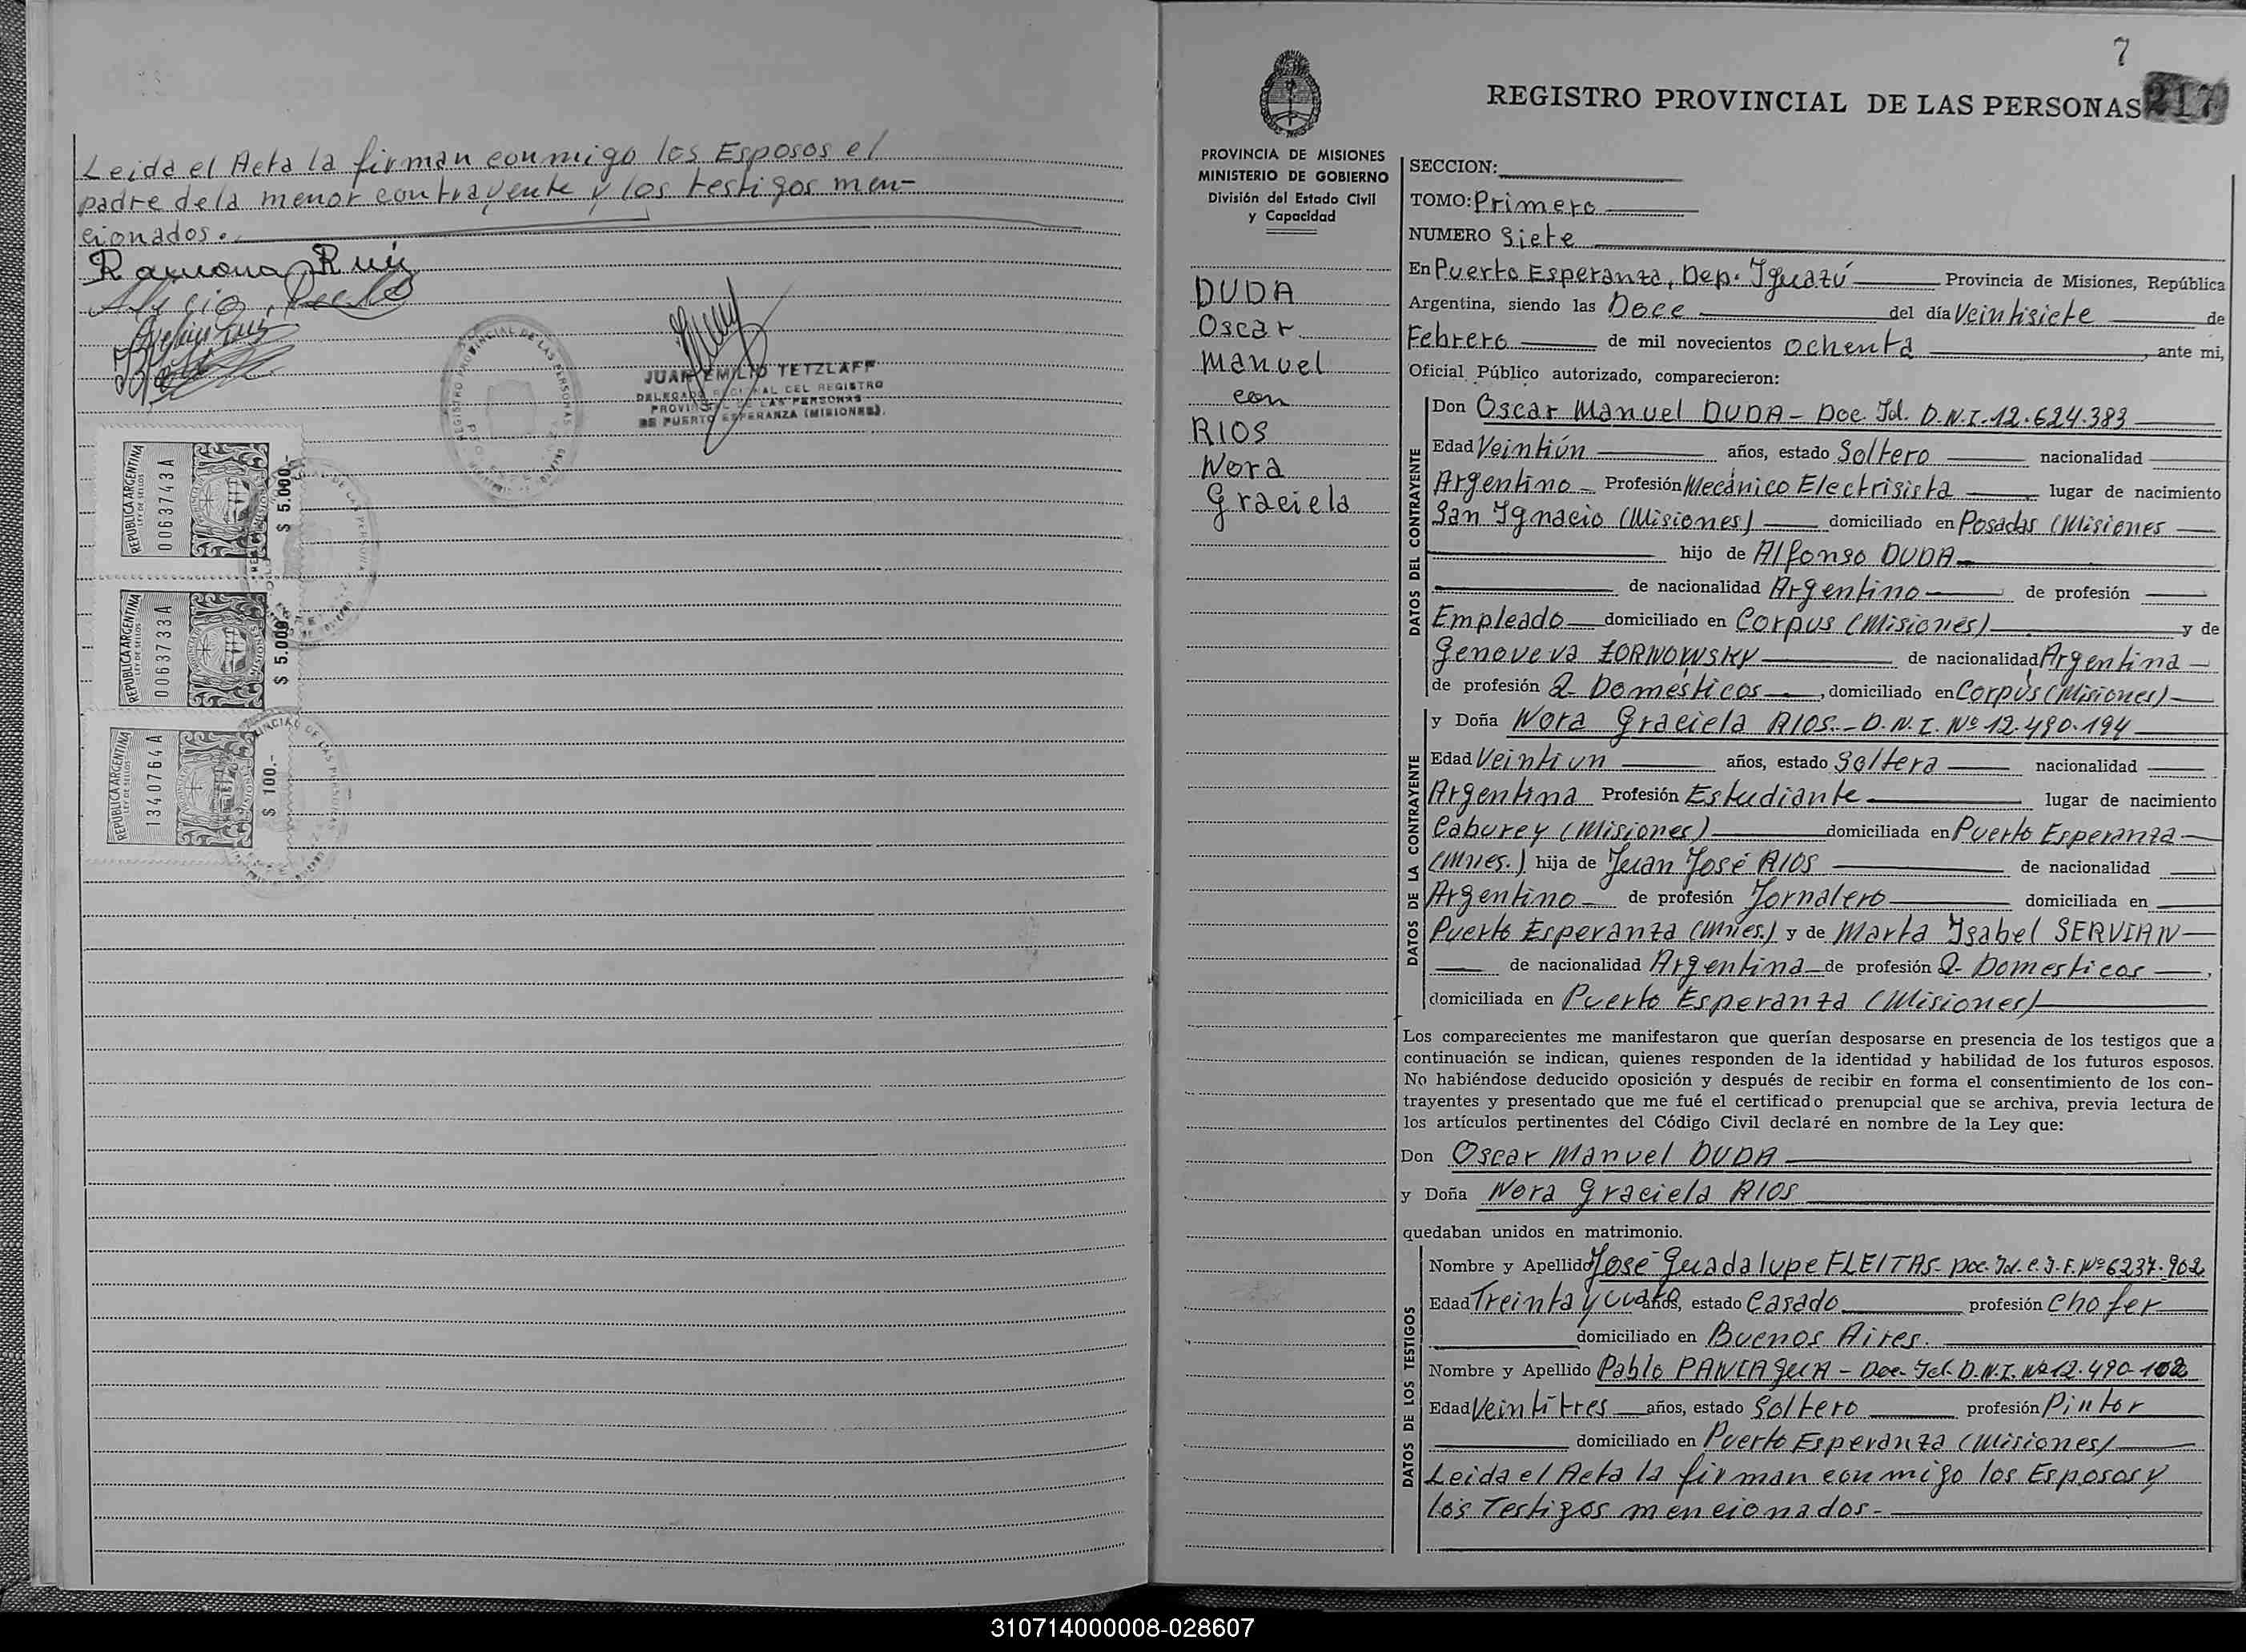 Leida el Acta la firman conmigo los Esposos el
padre de la menor contrayente y los testigos men-
cionados.
Ramona Ruiz
JUAN EMILIO TETZLAFF
DELEGADO REGIONAL DEL REGISTRO
PROVINCIAL DE LAS PERSONAS
DE PUERTO ESPERANZA (MISIONES).
REPUBLICA ARGENTINA
LEY DE SELLOS
0063743A
$ 5.000.-
REPUBLICA ARGENTINA
LEY DE SELLOS
0063733A
$ 5.000.-
REPUBLICA ARGENTINA
LEY DE SELLOS
1340764A
$ 100.-
7
REGISTRO PROVINCIAL DE LAS PERSONAS 217
PROVINCIA DE MISIONES
MINISTERIO DE GOBIERNO
División del Estado Civil
y Capacidad
DUDA
Oscar
Manuel
con
RIOS
Nora
Graciela
SECCION:
TOMO: Primero
NUMERO Siete
En Puerto Esperanza, Dep. Iguazú Provincia de Misiones, República
Argentina, siendo las Doce del día Veintisiete de
Febrero de mil novecientos ochenta, ante mi,
Oficial Público autorizado, comparecieron:
DATOS DEL CONTRAYENTE
Don Oscar Manuel DUDA - Doc. Id. D.N.I. 12.624.383
Edad Veintiún años, estado Soltero nacionalidad
Argentino - Profesión Mecánico Electrisista lugar de nacimiento
San Ignacio (Misiones) domiciliado en Posadas (Misiones
hijo de Alfonso DUDA
de nacionalidad Argentino de profesión
Empleado domiciliado en Corpus (Misiones) y de
Genoveva ZORNOWSKY de nacionalidad Argentina
de profesión Q- Domésticos, domiciliado en Corpus (Misiones)
DATOS DE LA CONTRAYENTE
y Doña Nora Graciela RIOS.- D.N.I. Nº 12.490.194
Edad Veintiun años, estado Soltera nacionalidad
Argentina Profesión Estudiante lugar de nacimiento
Caburey (Misiones) domiciliada en Puerto Esperanza
(Mnes.) hija de Juan José RIOS de nacionalidad
Argentino - de profesión Jornalero domiciliada en
Puerto Esperanza (Mnes.) y de Marta Ysabel SERVIAN
de nacionalidad Argentina de profesión Q- Domesticos,
domiciliada en Puerto Esperanza (Misiones)
Los comparecientes me manifestaron que querían desposarse en presencia de los testigos que a
continuación se indican, quienes responden de la identidad y habilidad de los futuros esposos.
No habiéndose deducido oposición y después de recibir en forma el consentimiento de los con-
trayentes y presentado que me fué el certificado prenupcial que se archiva, previa lectura de
los artículos pertinentes del Código Civil declaré en nombre de la Ley que:
Don Oscar Manuel DUDA
y Doña Nora Graciela RIOS
quedaban unidos en matrimonio.
DATOS DE LOS TESTIGOS
Nombre y Apellido José Guadalupe FLEITAS- Doc. Id. C.I.F. Nº 6237.902
Edad Treinta y Cuatro años, estado Casado profesión Chofer
domiciliado en Buenos Aires.
Nombre y Apellido Pablo PANIAGUA - Doc. Id. D.N.I. Nº 12.490-102
Edad Veintitres años, estado Soltero profesión Pintor
domiciliado en Puerto Esperanza (Misiones)
Leida el Acta la firman conmigo los Esposos y
los Testigos mencionados.-
310714000008-028607